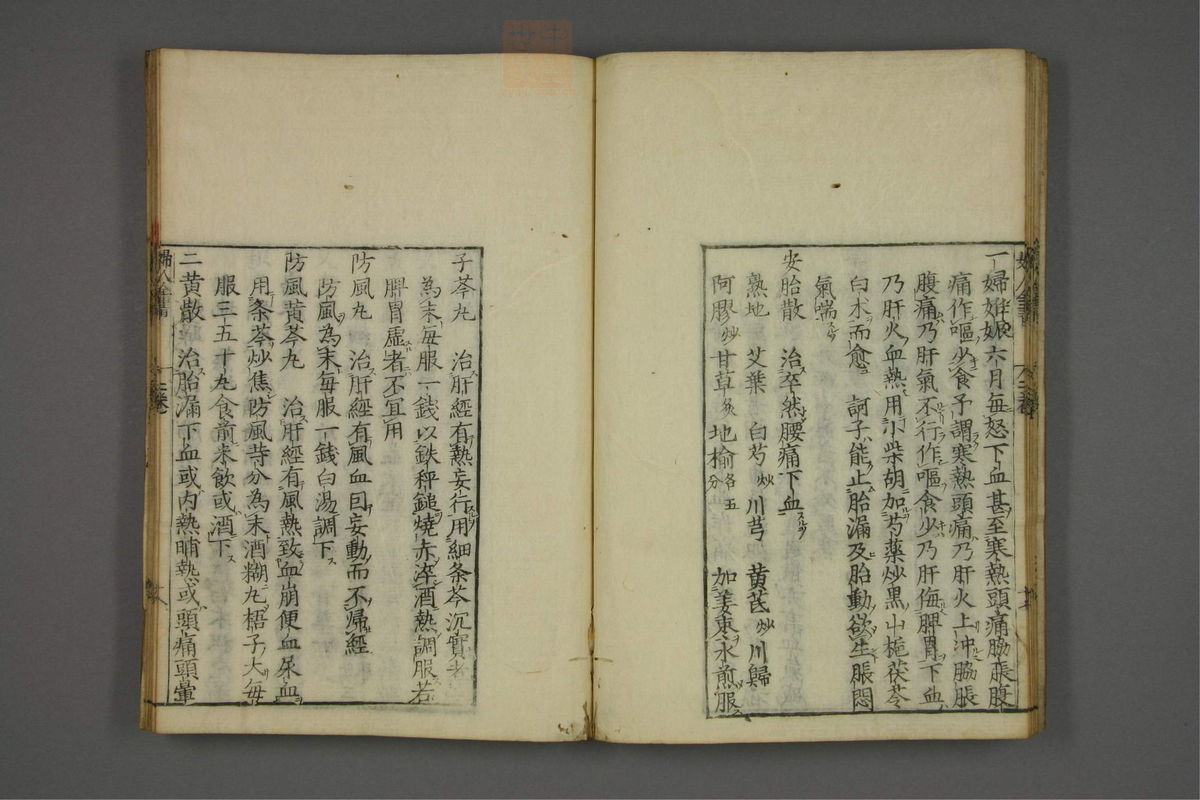 一婦妊娠六月每怒下血甚至寒熱頭痛脇脹腹
痛作嘔少食予謂寒熱頭痛乃肝火上冲脇脹
腹痛乃肝氣不行作嘔食少乃肝侮脾胃下血
乃肝火血熱用小柴胡加芍藥炒黑山梔茯苓
白朮而愈 訶子能止胎漏及胎動欲生脹悶
氣喘
安胎散 治卒然腰痛下血
熟地 艾葉 白芍炒 川芎 黄芪炒 川歸
阿膠炒 甘草炙 地榆各五分 加姜枣水煎服
子芩丸 治肝經有熱妄行用細条芩沉實者
為末每服一錢以鉄秤鎚燒赤淬酒熱調服若
脾胃虛者不宜用
防風丸 治肝經有風血因妄動而不帰經
防風為末每服一錢白湯調下
防風黄芩丸 治肝經有風熱致血崩便血尿血
用条芩炒焦防風等分為末酒糊丸梧子大每
服三五十丸食前米飲或酒下
二黄散 治胎漏下血或内熱晡熱或頭痛頭暈